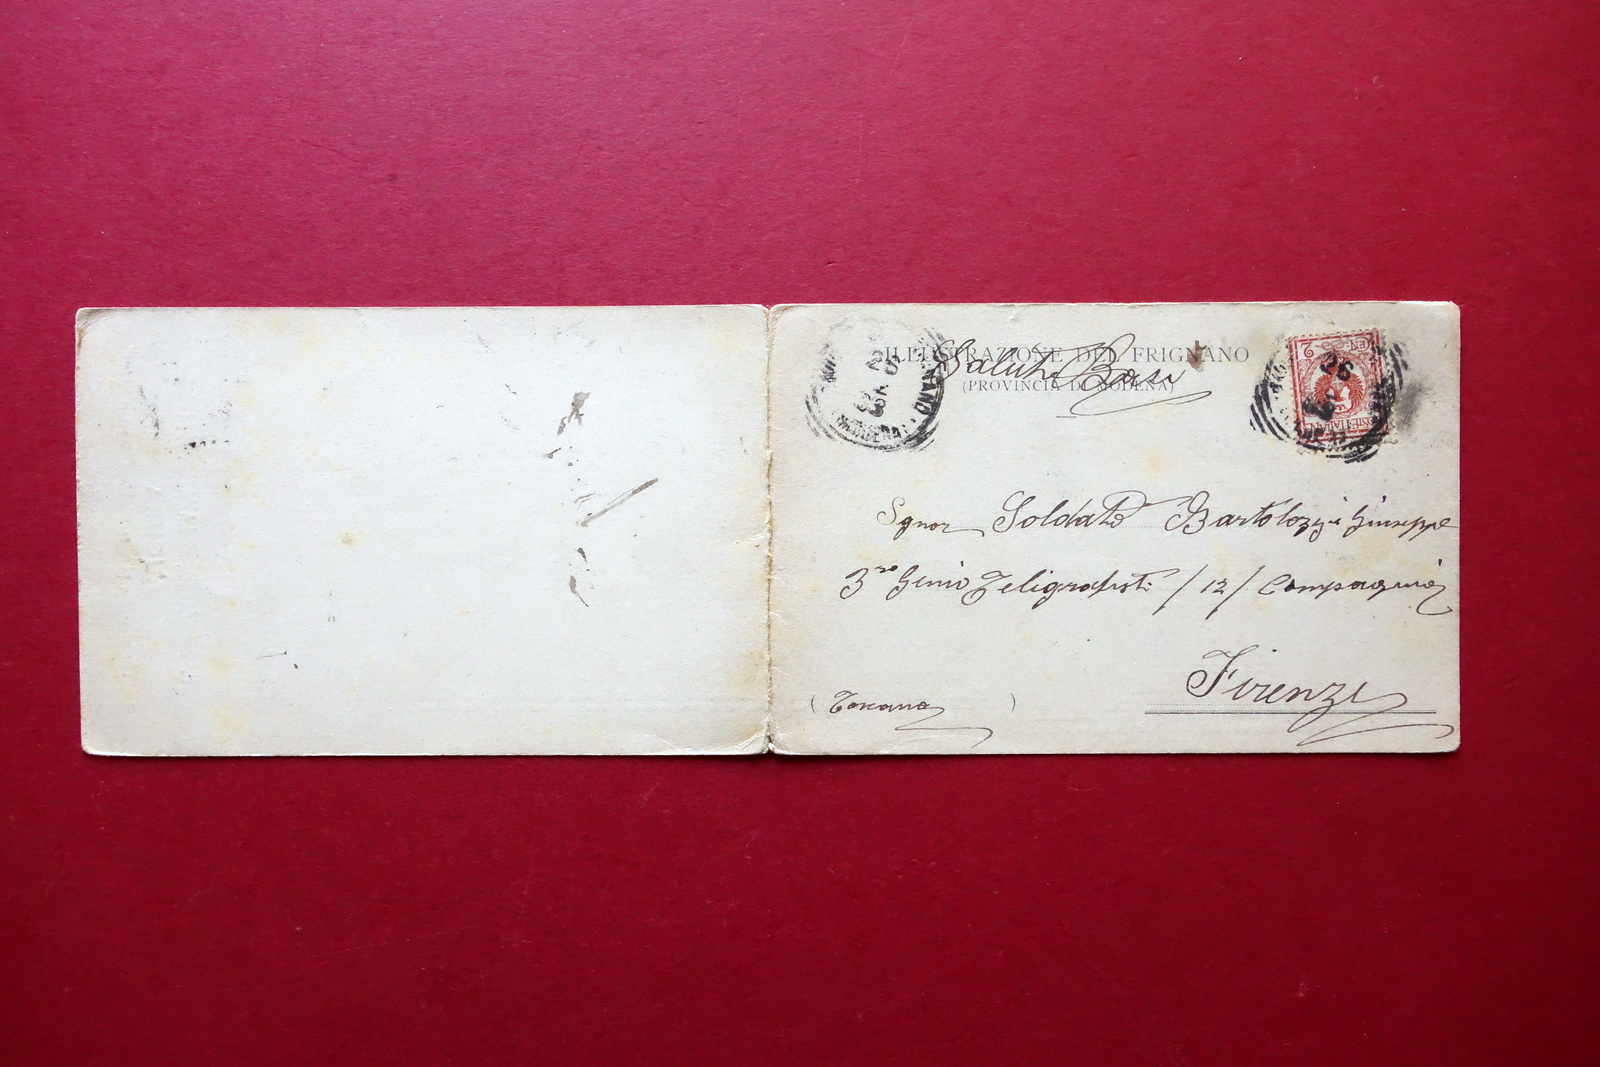 ILLUSTRAZIONE DEL FRIGNANO
(PROVINCIA DI MODENA)
Saluti Baci
Signor Soldato Bartolozzi Giuseppe
3ro Genio Teligrafisti /12/ Compagnia
Firenze
(Toscana)